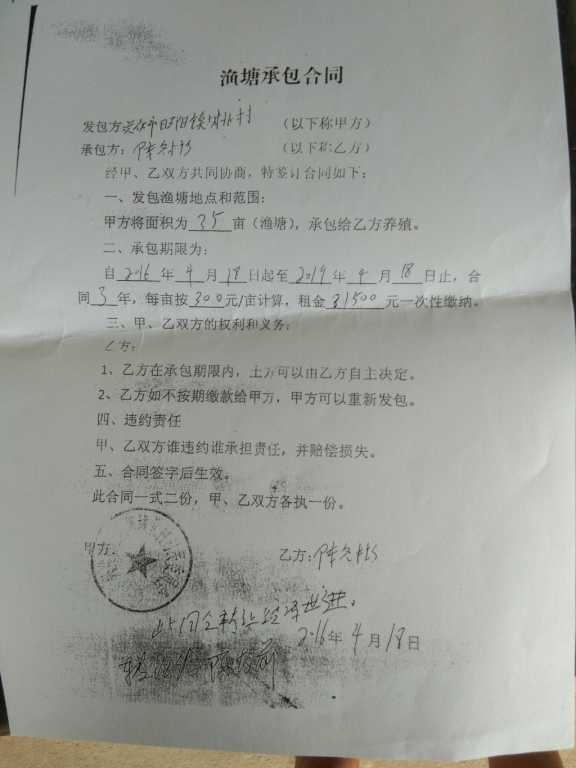 渔塘承包合同
发包方 （以下称甲方）
承包方：陈 （以下称乙方）
经甲、乙双方共同协商，特签订合同如下：
一、发包渔塘地点和范围：
甲方将面积为 35 亩（渔塘），承包给乙方养殖。
二、承包期限为：
自 2016 年 4 月 18 日起至 2019 年 4 月 18 日止，合
同 3 年，每亩按 300 元/亩计算，租金 31500 元一次性缴纳。
三、甲、乙双方的权利和义务：
乙方：
1、乙方在承包期限内，土方可以由乙方自主决定。
2、乙方如不按期缴款给甲方，甲方可以重新发包。
四、违约责任
甲、乙双方谁违约谁承担责任，并赔偿损失。
五、合同签字后生效。
此合同一式二份，甲、乙双方各执一份。
甲方： 乙方：陈
此合同
2016年 4 月 18 日